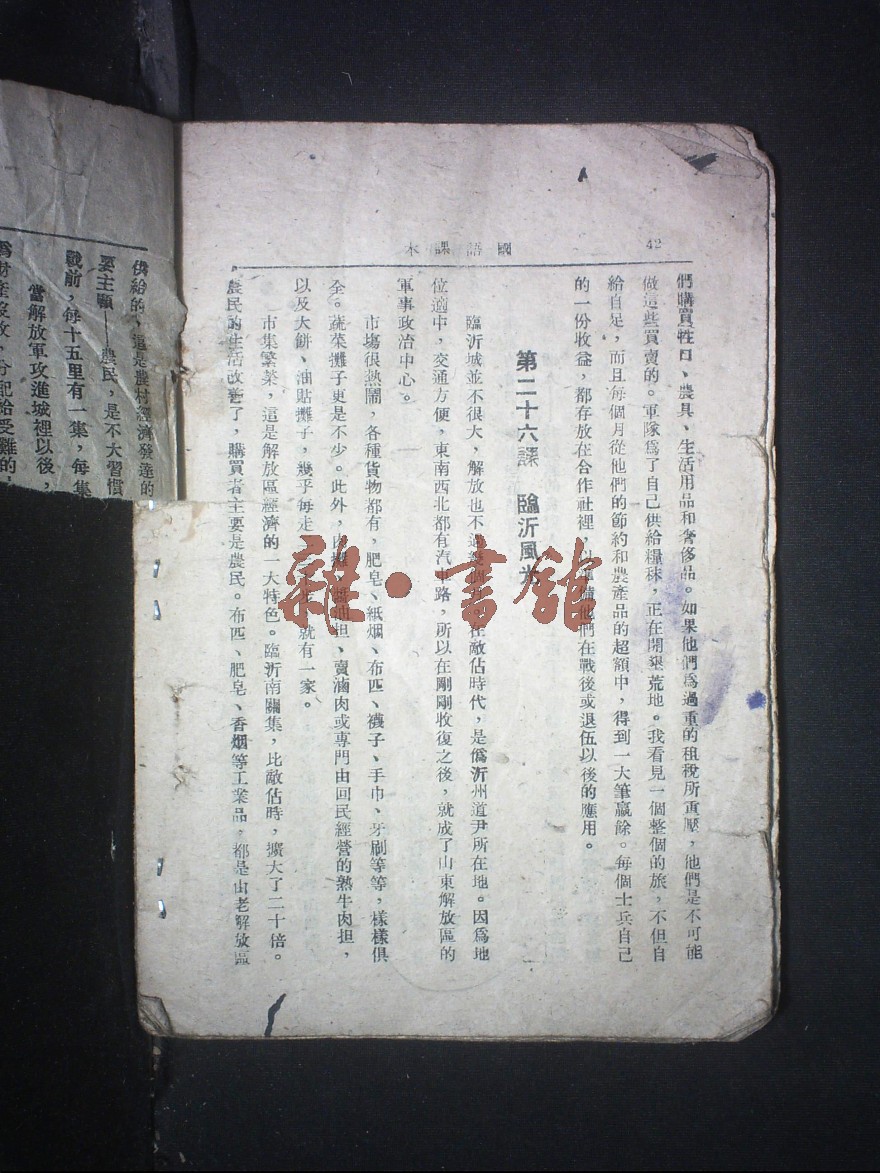 42
國語課本
們購買牲口、農具、生活用品和奢侈品。如果他們爲過重的租稅所重壓,他們是不可能
做這些買賣的。軍隊爲了自己供給糧秣,正在開墾荒地。我看見一個整個的旅,不但自
給自足,而且每個月從他們的節約和農產品的超額中,得到一大筆贏餘。每個士兵自己
的一份收益,都存放在合作社裡,以準備他們在戰後或退伍以後的應用。
第二十六課 臨沂風光
臨沂城並不很大,解放也不過幾個月在敵佔時代,是僞沂州道尹所在地。因爲地
位適中,交通方便,東南西北都有汽車路,所以在剛剛收復之後,就成了山東解放區的
軍事政治中心。
市場很熱鬧,各種貨物都有,肥皂、紙烟、布匹、襪子、手巾、牙刷等等,樣樣俱
全。蔬菜攤子更是不少。此外,攤、醬油担、賣滷肉或專門由回民經營的熟牛肉担,
以及大餅、油貼攤子,幾乎每走步就有一家。
市集繁榮,這是解放區經濟的一大特色。臨沂南關集,比敵佔時,擴大了二十倍。
農民的生活改善了,購買者主要是農民。布匹、肥皂、香烟等工業品,都是由老解放區
供給的,這是農村經濟發達的
要主顧——農民,是不大習慣
戰前,每十五里有一集,每集
當解放軍攻進城裡以後,
爲財產沒收,分配給受難的
雜·書館